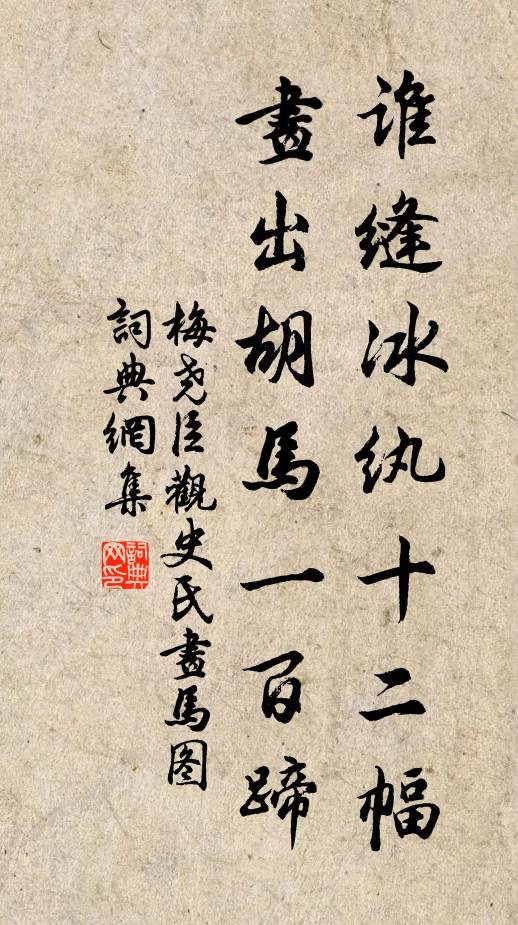 谁缝冰纨十二幅
畫出胡馬一百蹄
梅尧臣觀史氏畫馬图
詞典網集
詞典网印